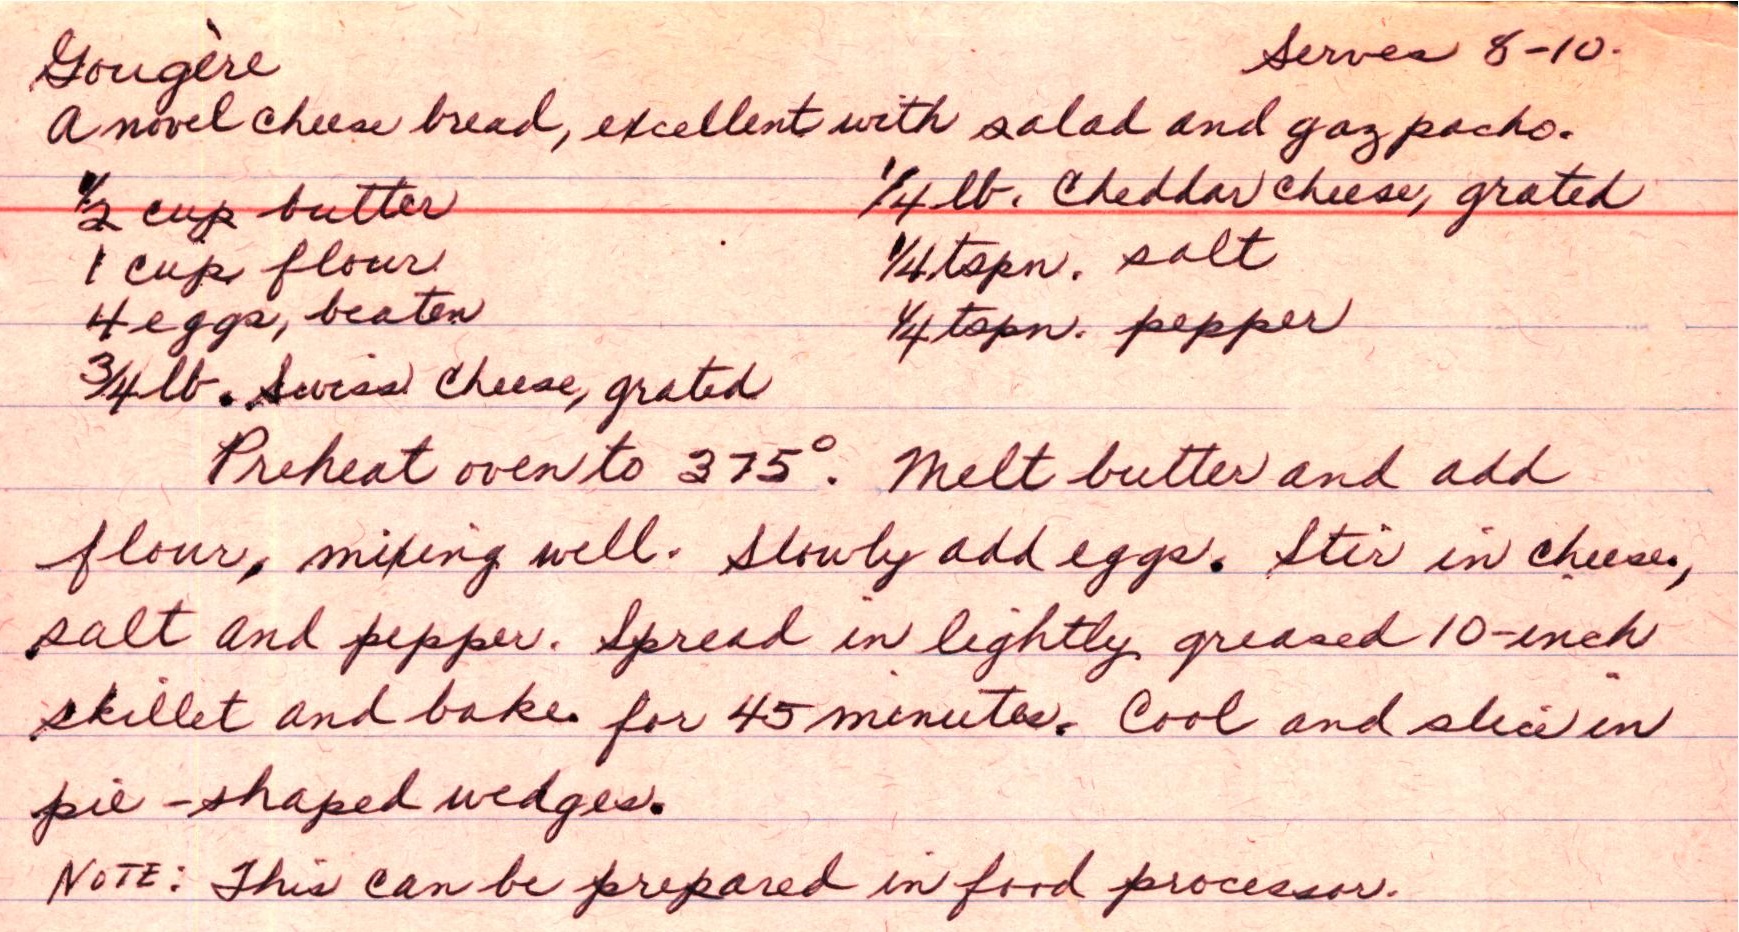 Gougère Serves 8-10.
A novel cheese bread, excellent with salad and gazpacho.
1/2 cup butter 1/4 lb. Cheddar cheese, grated
1 cup flour 1/4 tspn. salt
4 eggs, beaten 1/4 tspn. pepper
3/4 lb. Swiss cheese, grated
Preheat oven to 375°. Melt butter and add
flour, mixing well. Slowly add eggs. Stir in cheese,
salt and pepper. Spread in lightly greased 10-inch
skillet and bake for 45 minutes. Cool and slice in
pie-shaped wedges.
NOTE: This can be prepared in food processor.